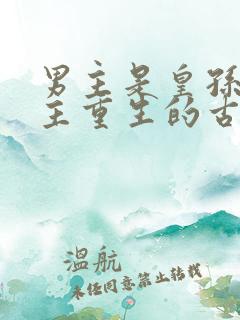 男主是皇孙
主重生的古
温航
未经同意禁止转载